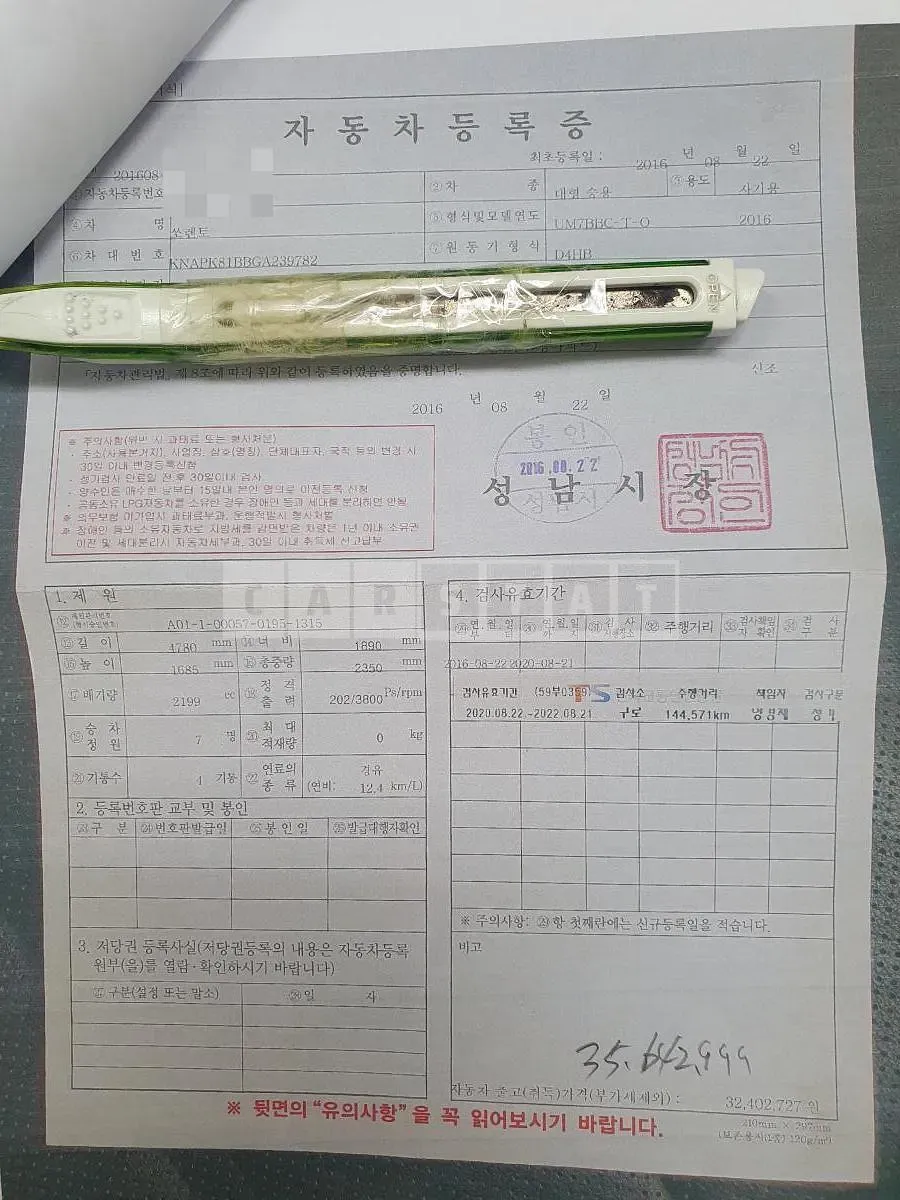 자동차등록증
최초등록일 : 2016 년 08 월 22 일
201608
자동차등록번호 ②차 종 대형 승용 ③용도 자가용
④차 명 쏘렌토 ⑤형식및모델연도 UM7BBC-T-O 2016
⑥차대번호 KNAPK81BBGA239782 ⑦원동기형식 D4HB
OPEN
「자동차관리법」 제8조에 따라 위와 같이 등록하였음을 증명합니다. 신조
2016 년 08 월 22 일
※ 주의사항(위반 시 과태료 또는 형사처분)
- 주소(사용본거지), 사업장, 상호(명칭), 단체대표자, 국적 등의 변경 시
30일 이내 변경등록신청
- 정기검사 만료일 전·후 30일이내 검사
- 양수인은 매수한 날부터 15일내 본인 명의로 이전등록 신청
- 공동소유 LPG자동차를 소유한 경우 장애인 등과 세대를 분리하면 안됨
※ 의무보험 미가입시 과태료부과, 운행적발시 형사처벌
※ 장애인 등의 소유자동차로 지방세를 감면받은 차량은 1년 이내 소유권
이전 및 세대분리시 자동차세부과, 30일 이내 취득세 신고납부
봉인
성남시장
성남시
CARSTAT
1. 제 원
⑫제원관리번호 (형식승인번호) A01-1-00057-0195-1315
⑬길 이 4780 mm ⑭너 비 1890 mm
⑮높 이 1685 mm ⑯총중량 2350 mm
⑰배기량 2199 cc ⑱정격출력 202/3800 Ps/rpm
⑲승차정원 7 명 ⑳최대적재량 0 kg
㉑기통수 4 기통 ㉒연료의종류 경유 (연비: 12.4 km/L)
2. 등록번호판 교부 및 봉인
㉓구 분 ㉔번호판발급일 ㉕봉인일 ㉖발급대행자확인
3. 저당권 등록사실(저당권등록의 내용은 자동차등록
원부(을)를 열람·확인하시기 바랍니다)
㉗구분(설정 또는 말소) ㉘일 자
4. 검사유효기간
㉙연.월.일 부터 ㉚연.월.일 까지 ㉛검사 시행장소 ㉜주행거리 ㉝검사책임자확인 ㉞검사구분
2016-08-22 2020-08-21
검사유효기간 (59부0359) TS 검사소 주행거리 책임자 검사구분
2020.08.22.-2022.08.21 구로 144,571km
※ 주의사항: ㉙항 첫째란에는 신규등록일을 적습니다.
비고
35.642,999
자동차 출고(취득)가격(부가세제외) : 32,402,727 원
※ 뒷면의 "유의사항"을 꼭 읽어보시기 바랍니다.
210mm × 297mm
(보존용지(1종) 120g/m²)